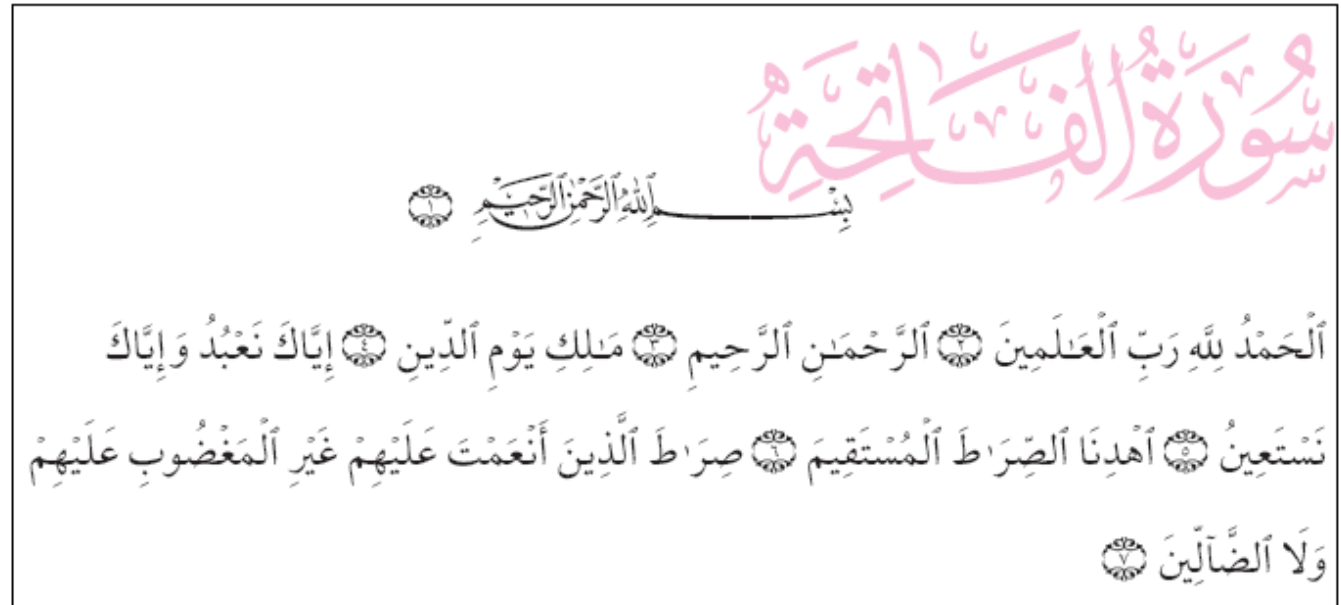 سُورَةُ ٱلْفَاتِحَةِ
بِسْمِ ٱللَّهِ ٱلرَّحْمَٰنِ ٱلرَّحِيمِ ١
ٱلْحَمْدُ لِلَّهِ رَبِّ ٱلْعَـٰلَمِينَ ٢ ٱلرَّحْمَـٰنِ ٱلرَّحِيمِ ٣ مَـٰلِكِ يَوْمِ ٱلدِّينِ ٤ إِيَّاكَ نَعْبُدُ وَإِيَّاكَ
نَسْتَعِينُ ٥ ٱهْدِنَا ٱلصِّرَٰطَ ٱلْمُسْتَقِيمَ ٦ صِرَٰطَ ٱلَّذِينَ أَنْعَمْتَ عَلَيْهِمْ غَيْرِ ٱلْمَغْضُوبِ عَلَيْهِمْ
وَلَا ٱلضَّآلِّينَ ٧